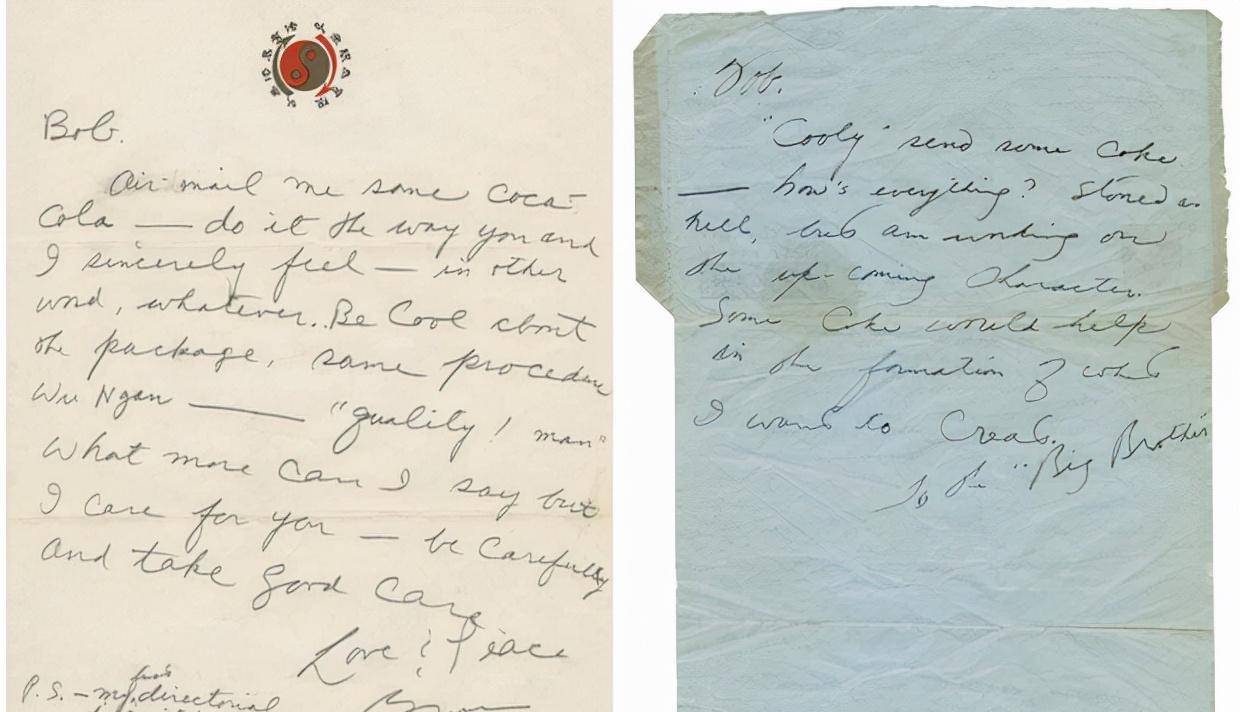 Bob.
Air mail me some Coca-
Cola — do it the way you and
I sincerely feel — in other
word, whatever.. Be Cool about
the package, same procedure
Wu Ngan — "quality! man"
What more can I say but
I care for you — be Carefully
and take good care
Love & Peace
P.S. — my first directorial
Bob.
"Cooly" send some Coke
— how's everything? Stoned as
hell, but am working on
the up-coming Character.
Some Coke would help
in the formation of what
I want to Create.
"Big Brother"